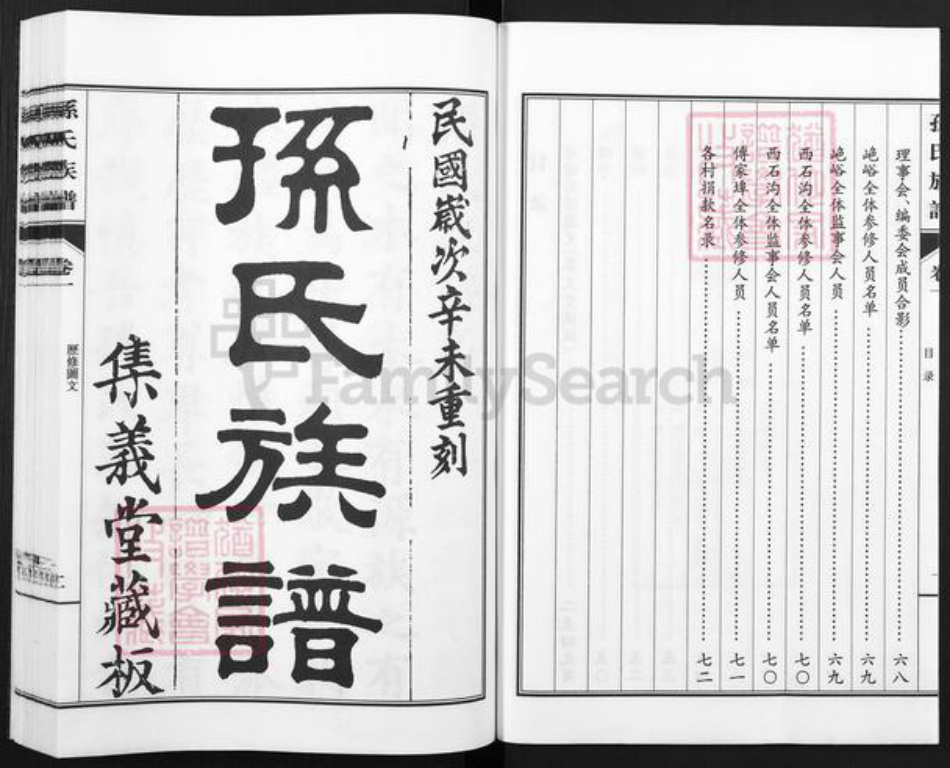 理事会、编委会成员合影 六八
峗峪全体参修人员名单 六九
峗峪全体监事会人员 六九
西石沟全体参修人员名单 七〇
西石沟全体监事会人员名单 七〇
傅家埠全体参修人员 七一
各村捐款名录 七二
目录
民國歲次辛未重刻
孫氏族譜
集義堂藏板
孫氏族譜
卷一
歷修圖文
FamilySearch